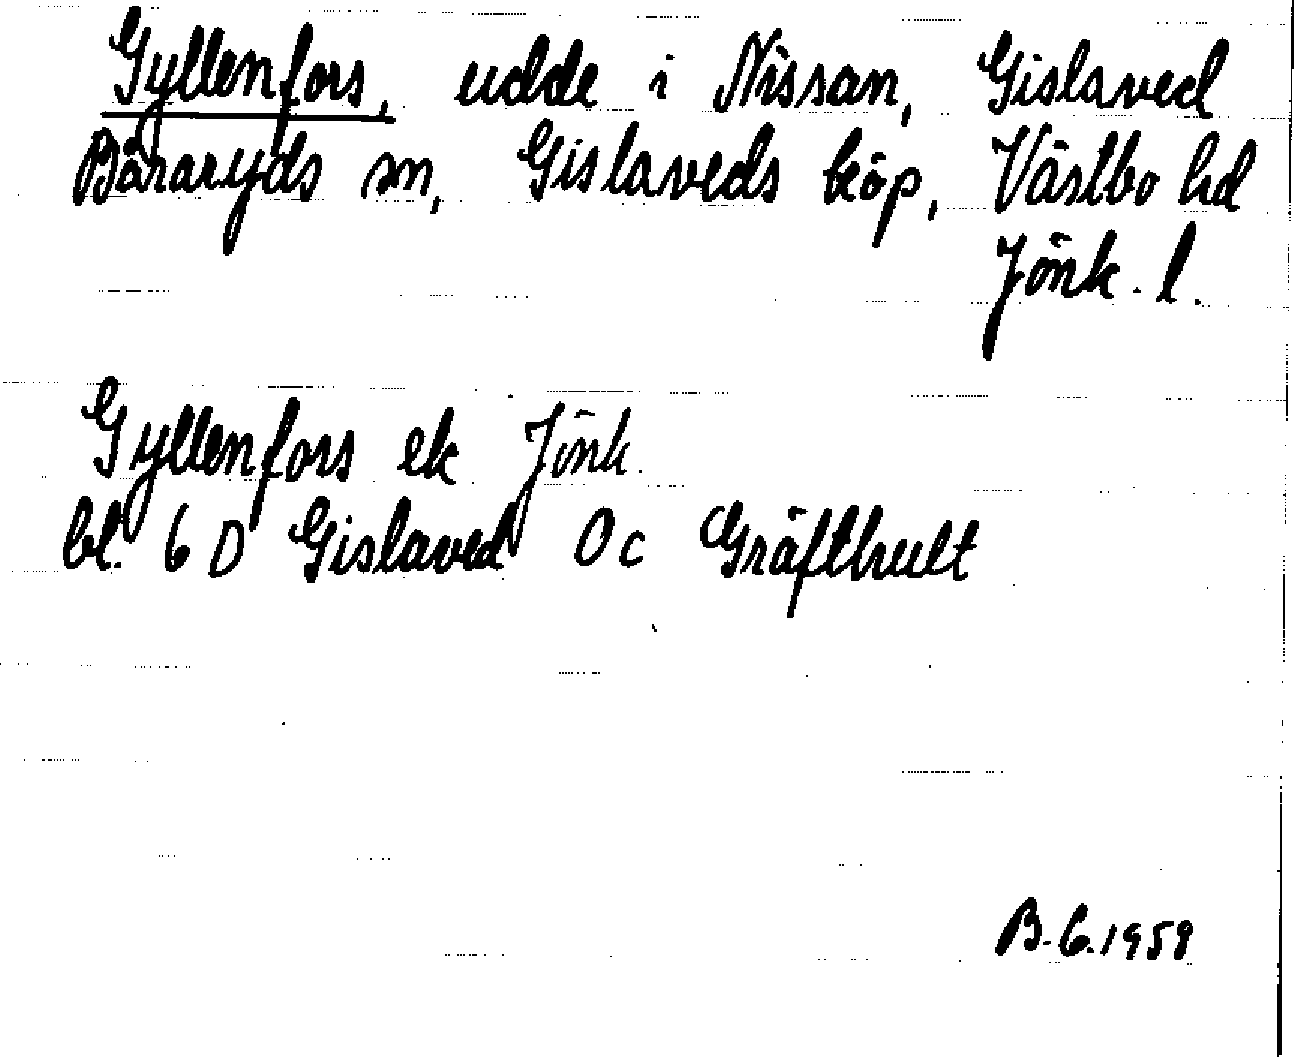 Gyllenfors, udde i Nissan, Gislaved
Båraryds sn, Gislaveds köp, Västbo hd
Jönk. l.
Gyllenfors ek Jönk.
bl. 6 D Gislaved 0 c Gräfthult
B. G. 1959